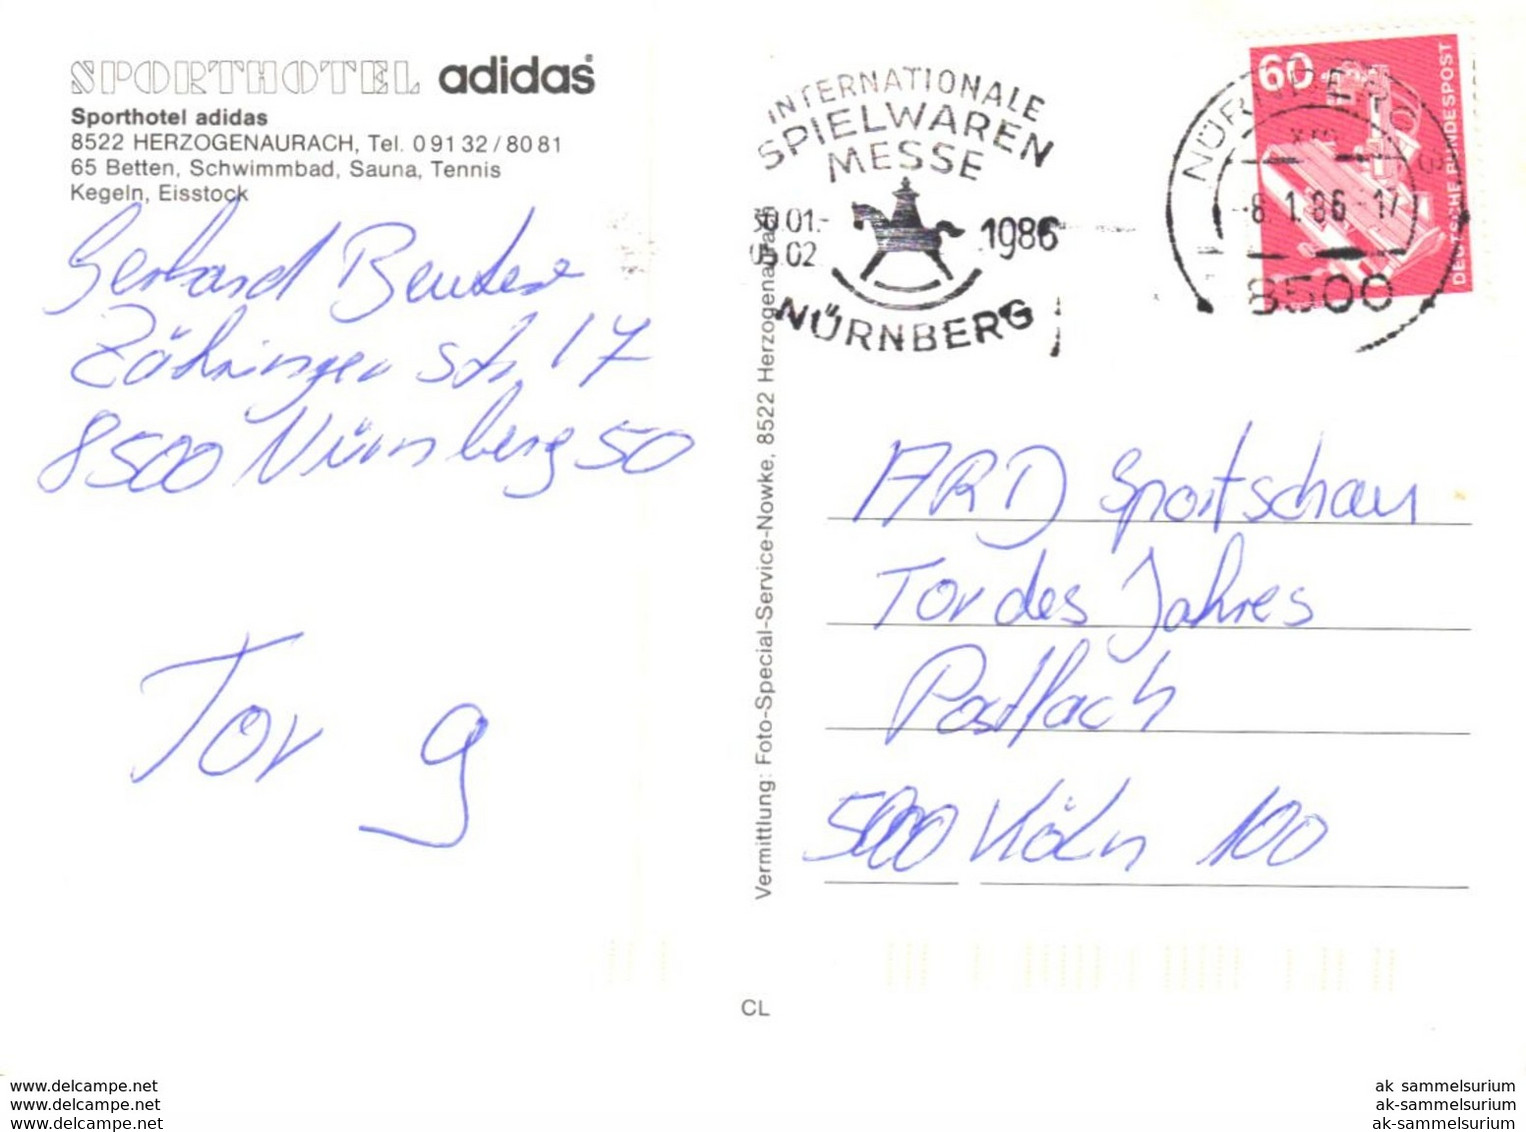 SPORTHOTEL adidas
Sporthotel adidas
8522 HERZOGENAURACH, Tel. 0 91 32 / 80 81
65 Betten, Schwimmbad, Sauna, Tennis
Kegeln, Eisstock
Gerhard
Zähringer str 17
8500 Nürnberg 50
Tor g
Vermittlung: Foto-Special-Service-Nowke, 8522 Herzogenaurach
INTERNATIONALE
SPIELWAREN
MESSE
30.01.-
05.02
1986
NÜRNBERG
60
DEUTSCHE BUNDESPOST
NÜRNBERG
-8.1.86-17
8500
ARD Sportschau
Tor des Jahres
Postfach
5000 Köln 100
CL
www.delcampe.net
www.delcampe.net
www.delcampe.net
ak_sammelsurium
ak-sammelsurium
ak-sammelsurium